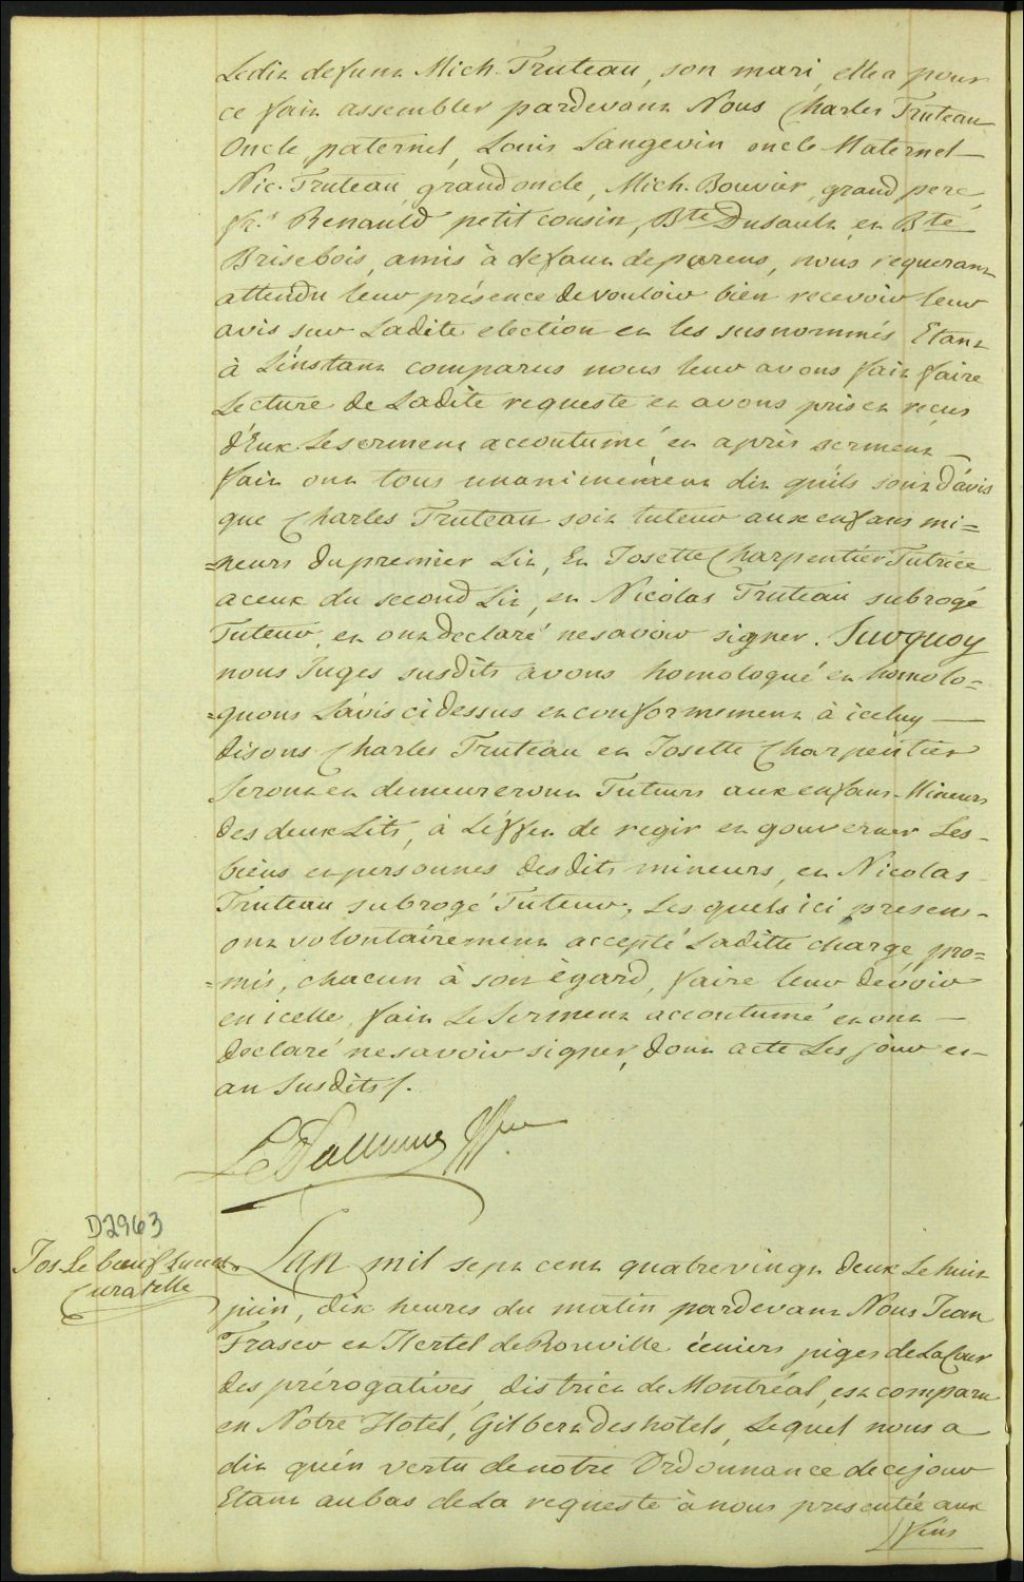 Ledit defunt Mich. Truteau, son mari, elle a pour
ce fait assembler pardevant Nous Charles Truteau
Oncle paternel, Louis Langevin oncle Maternel
Nic. Truteau, grand oncle, Mich. Bouvier, grand pere,
fr.s Renauld petit cousin, Bte Dusault et Bte
Brisebois, amis à defaut de parens, nous requerant
attendu leur présence de vouloir bien recevoir leur
avis sur Ladite election et les susnommés Etant
à L'instant comparus nous leur avons fait faire
Lecture de Ladite requeste et avons pris et reçus
d'Eux Le serment accoutumé et après serment
fait ont tous unanimément dit qu'ils sont d'avis
que Charles Truteau soit tuteur aux enfans mi=
=neurs du premier Lit, Et Josette Charpentier Tutrice
a ceux du second Lit, et Nicolas Truteau subrogé
Tuteur et ont declaré ne savoir signer. Surquoy
nous Juges susdits avons homologué et homolo=
=guons L'avis ci dessus et conformement à iceluy
disons Charles Truteau et Josette Charpentier
Seront et demeureront Tuteurs aux enfans Mineurs
des deux Lits, à L'effet de regir et gouverner Les
biens et personnes desdits mineurs, et Nicolas
Truteau subrogé Tuteur, Les quels ici presens
ont volontairement accepté Laditte charge, pro=
=mis, chacun à son ègard, faire leur devoir
en icelle, fait Le Serment accoutumé et ont
declaré ne savoir signer, dont acte Les jour et
an Susdits /.
D2963
Jos. Le boeuf
Curatelle
Lan mil sept cent quatrevingt deux Le huit
juin, dix heures du matin pardevant Nous Jean
Fraser et Hertel de Rouville écuiers juges de La Cour
des prérogatives, district de Montréal, est comparu
en Notre Hotel, Gilbert deshotels, Lequel nous a
dit qu'en vertu de notre Ordonnance de ce jour
Etant au bas de La requeste à nous presentée aux
fins